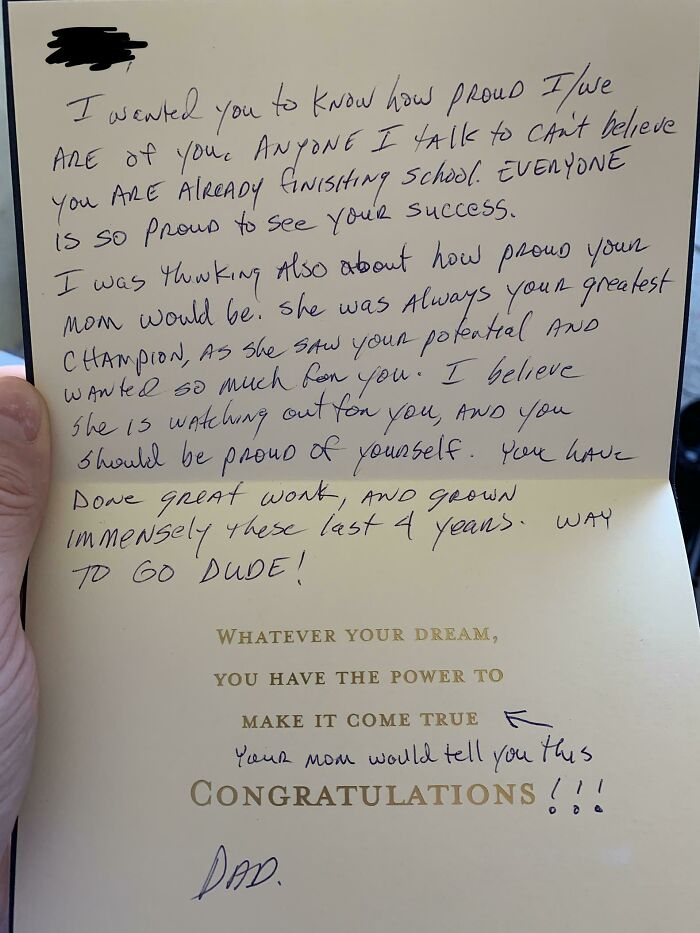 I wanted you to know how proud I/we
ARE of you. ANYONE I tAlk to cAn't believe
you ARE AlReADy finishing school. EVERYONE
is so proud to see your success.
I was thinking Also about how proud your
mom would be. She was Always your greatest
CHAmpioN, As she sAw your potential AND
wAnted so much for you. I believe
she is wAtching out for you, AND you
should be proud of yourself. You hAve
Done great work, AND grown
immensely these last 4 years. WAY
TO GO DUDE!
WHATEVER YOUR DREAM,
YOU HAVE THE POWER TO
MAKE IT COME TRUE ←
Your mom would tell you this
CONGRATULATIONS !!!
DAD.